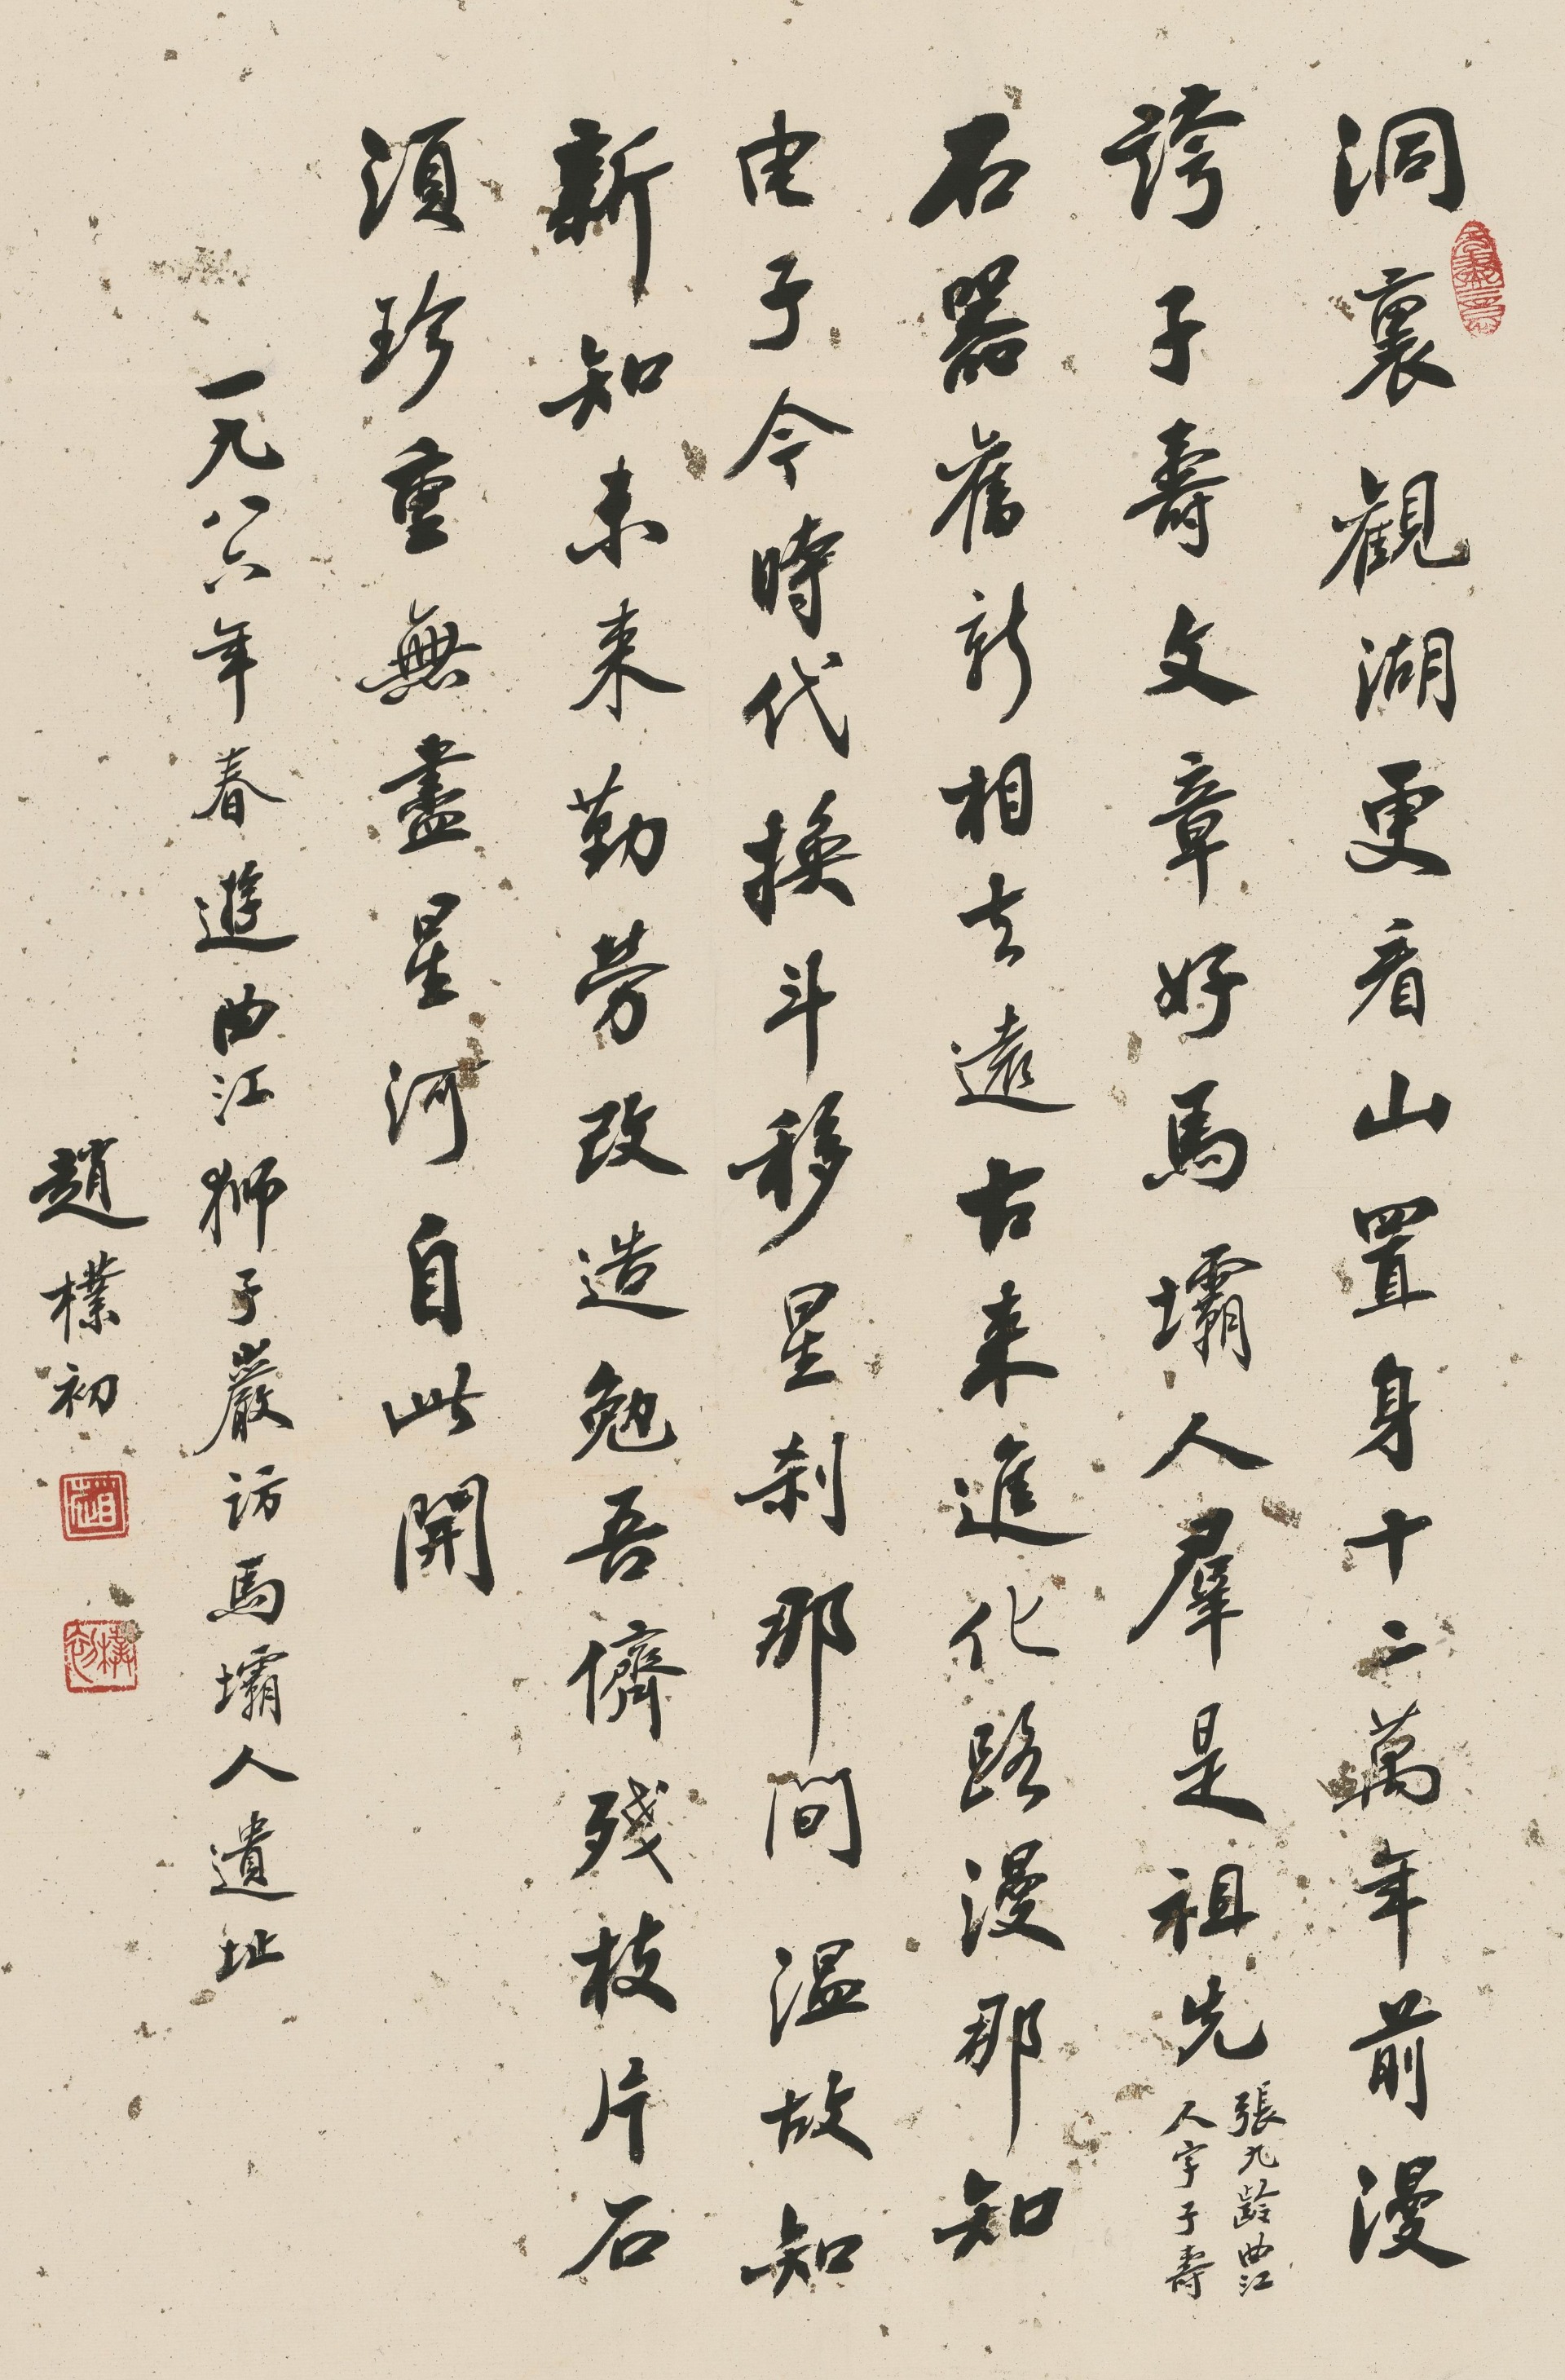 洞裏觀湖更看山置身十二萬年前漫
誇子壽文章好馬壩人羣是祖先
張九齡曲江
人字子壽
石器舊新相去遠古來進化路漫那知
电子今時代換斗移星刹那間溫故知
新知未来勤劳改造勉吾儕殘枝片石
須珍重無盡星河自此開
一九八六年春遊曲江狮子巖访馬壩人遺址
趙樸初
趙
樸初